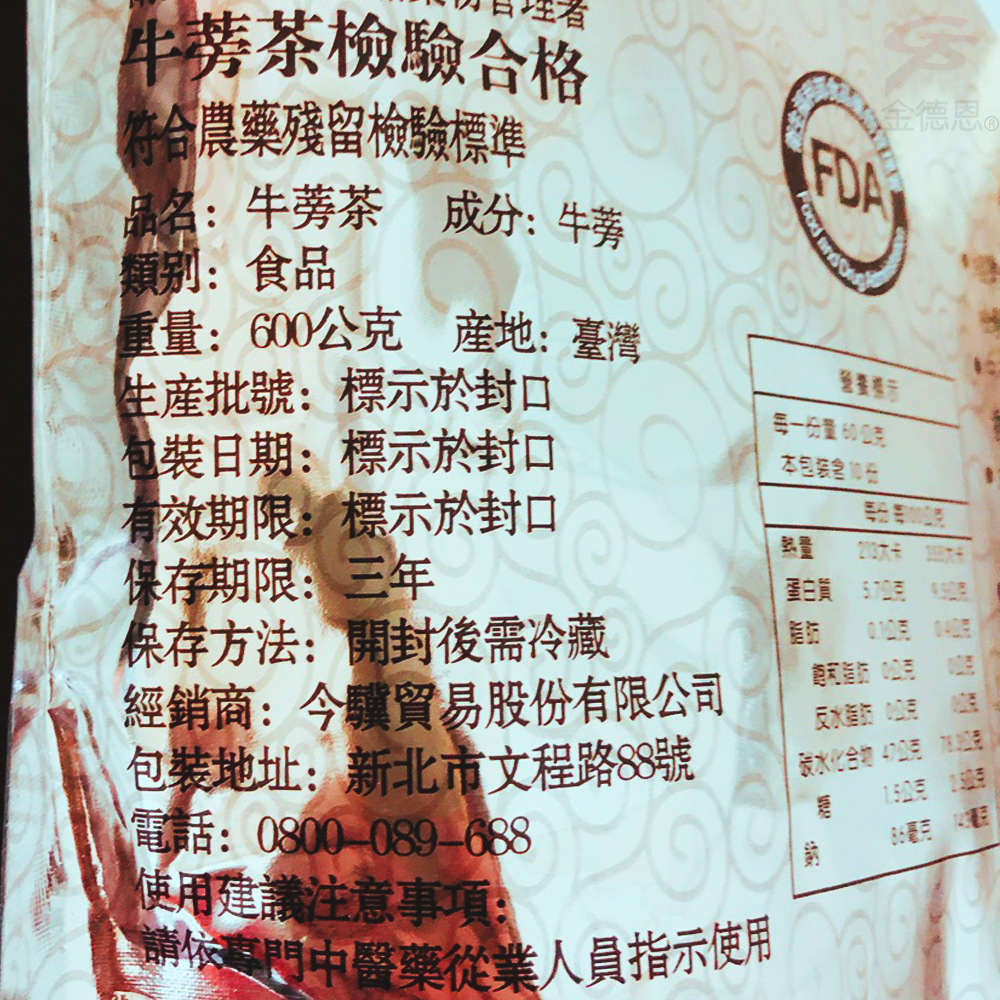 牛蒡茶檢驗合格
符合農藥殘留檢驗標準
品名：牛蒡茶 成分：牛蒡
類別：食品
重量：600公克 産地：臺灣
生産批號：標示於封口
包裝日期：標示於封口
有效期限：標示於封口
保存期限：三年
保存方法：開封後需冷藏
經銷商：今驥貿易股份有限公司
包裝地址：新北市文程路88號
電話：0800-089-688
使用建議注意事項：
請依專門中醫藥從業人員指示使用
金德恩®
FDA
Food and Drug
營養標示
每一份量 60公克
本包裝含 10份
每份 每100公克
熱量 213大卡
蛋白質 5.7公克 9.5公克
脂肪 0.1公克
飽和脂肪 0公克 0公克
反水脂肪 0公克 0公克
碳水化合物 47公克
糖 1.5公克 2.5公克
鈉 86毫克 143毫克